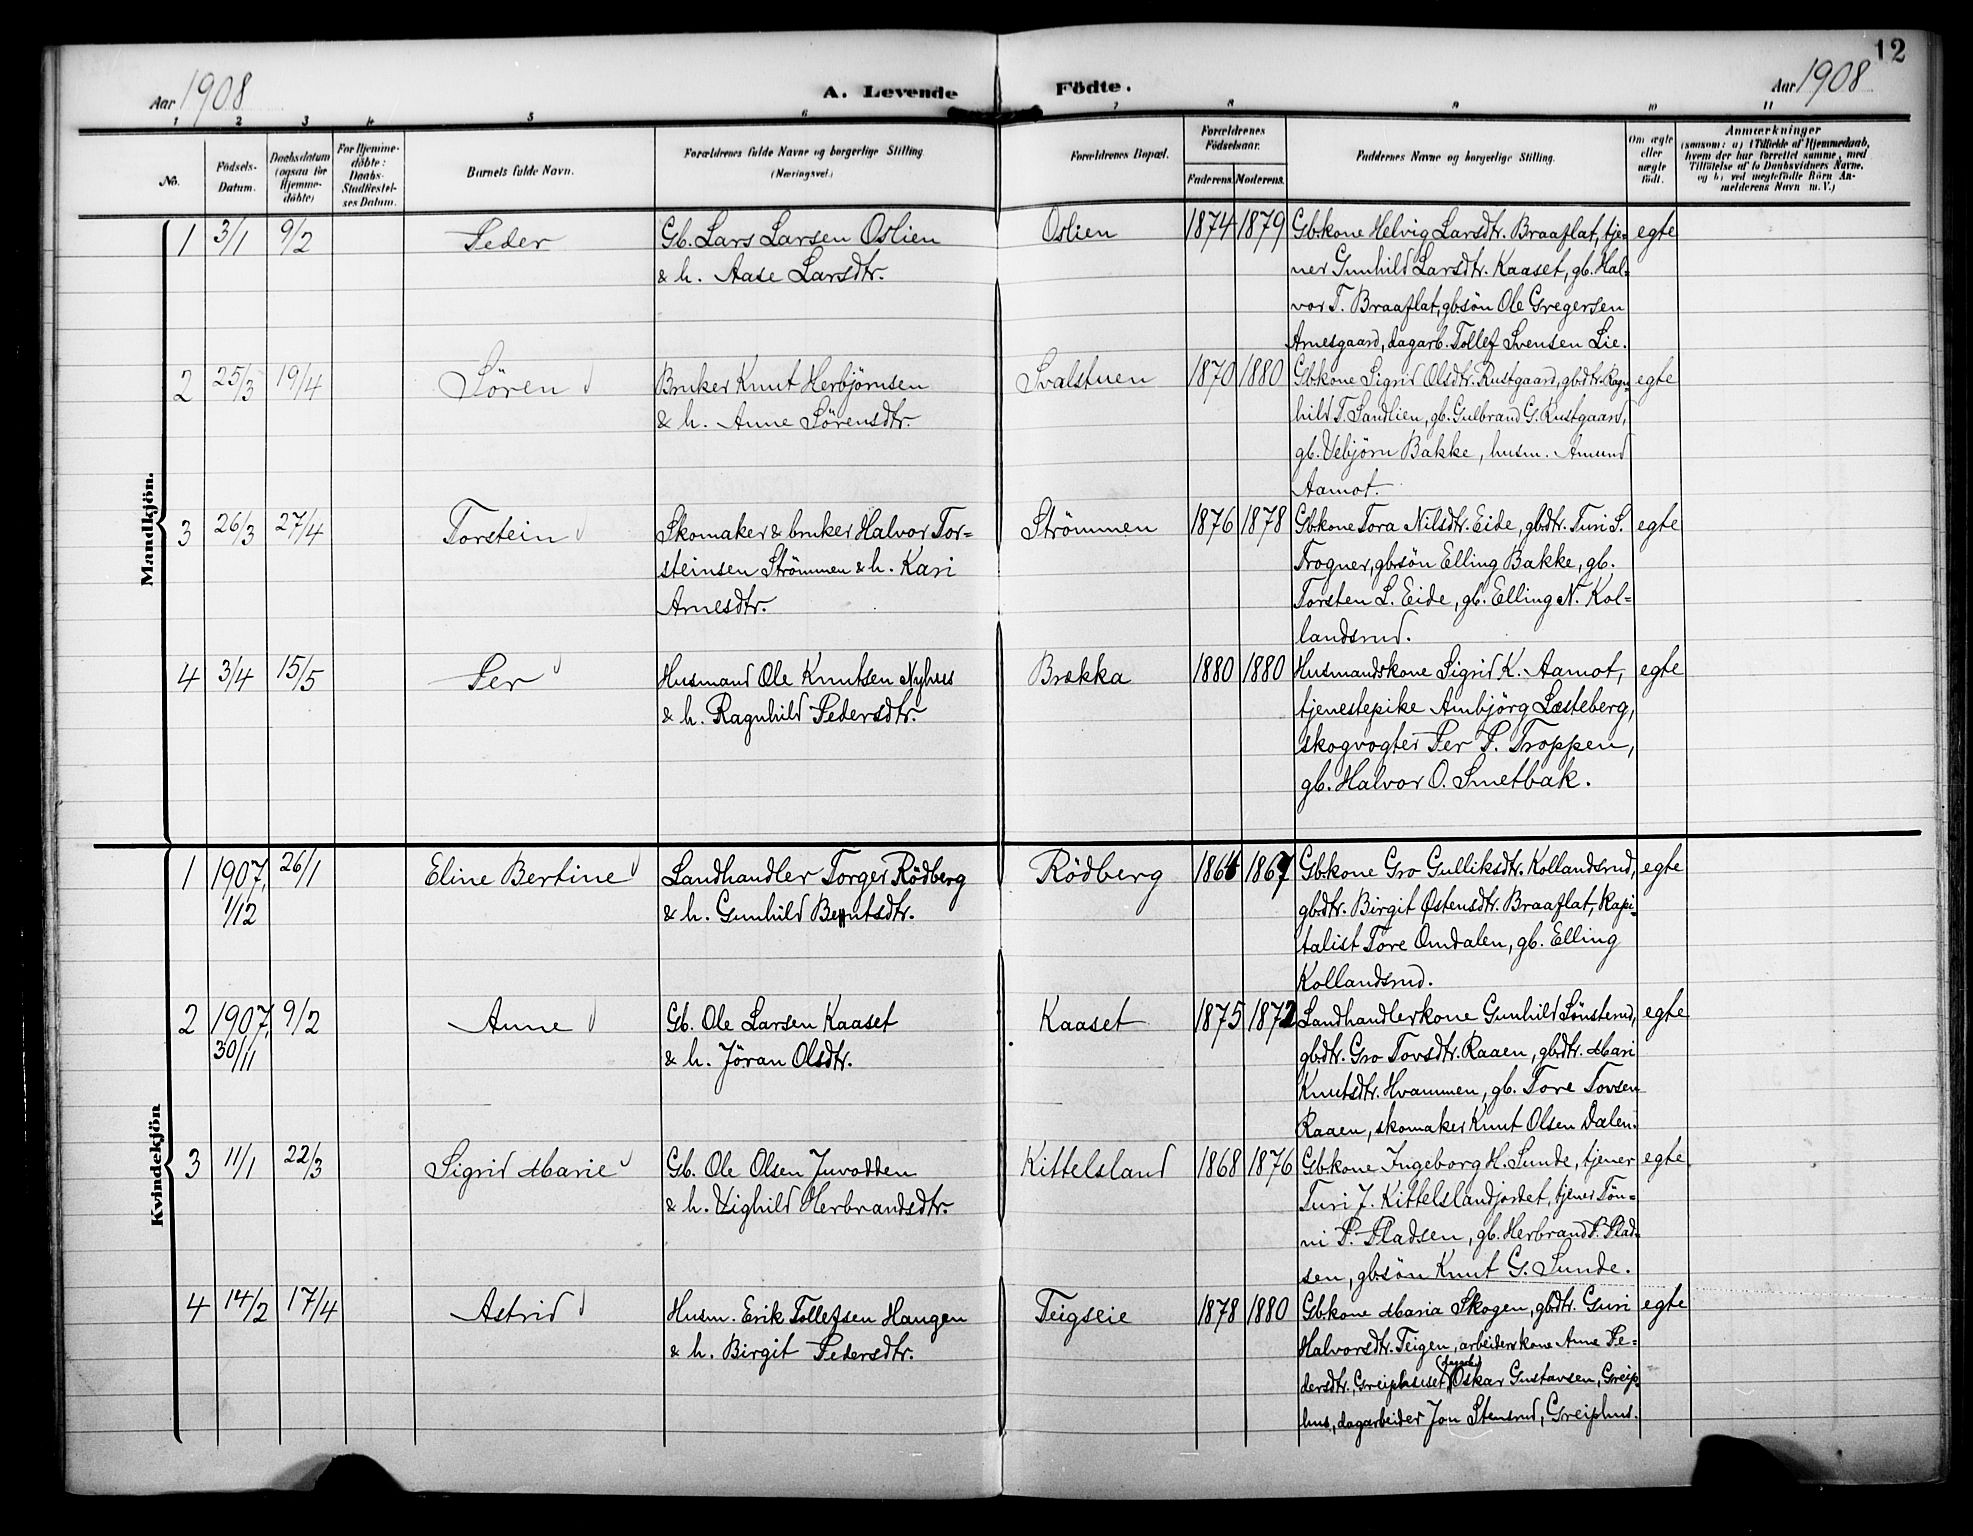 12
Aar 1908
A. Levende Födte.
Aar 1908
1 2 3 4 5 6 7 8 9 10 11
No.
Födsels-
Datum.
Daabsdatum
(ogsaa for
Hjemme-
döbte)
For Hjemme-
döbte:
Daabs-
Stadfæstel-
ses Datum.
Barnets fulde Navn.
Forældrenes fulde Navne og borgerlige Stilling.
(Næringsvei.)
Forældrenes Bopæl.
Forældrenes
Födselsaar.
Faderens. Moderens.
Faddernes Navne og borgerlige Stilling.
Om ægte
eller
uægte
födt.
Anmærkninger
(saasom: a) i Tilfælde af Hjemmedaab,
hvem der har forrettet samme, med
Tilföielse af to Daabsvidners Navne,
og b) ved uægtefödte Börn An-
melderens Navn m. V.)
Mandkjön.
1 3/1 9/2 Peder
Gb. Lars Larsen Oslien
& h. Aase Larsdtr.
Oslien 1874 1879
Gbkone Helvig Larsdtr. Braaflat, tje-
ner Gunhild Larsdtr. Kaaset, gb. Hal-
vor T. Braaflat, gbsön Ole Gregersen
Arnesgaard, dagarb. Tollef Svensen Lie.
egte
2 25/3 19/4 Sören
Bruker Knut Herbjörnsen
& h. Anne Sörensdtr.
Svalstuen 1870 1880
Gbkone Sigrid Olsdtr. Rustgaard, gbdtr. Ragn-
hild T. Sandlien, gb. Gulbrand G. Rustgaard,
gb. Vebjörn Bakke, husm. Amund
Aamot.
egte
3 26/3 27/4 Torstein
Skomaker & bruker Halvor Tor-
steinsen Strömmen & h. Kari
Arnesdtr.
Strömmen 1876 1878
Gbkone Tora Nilsdtr. Eide, gbdtr. Turi S.
Frogner, gbsön Elling Bakke, gb.
Torsten L. Eide, gb. Elling N. Kol-
landsrud.
egte
4 3/4 15/5 Per
Husmand Ole Knutsen Nyhus
& h. Ragnhild Pedersdtr.
Brække 1880 1880
Husmandskone Sigrid K. Aamot,
tjenestepike Ambjörg Læsteberg,
skogvogter Per P. Troppen,
gb. Halvor O. Smetbak.
egte
Kvindekjön
1 1907, 1/12 26/1 Eline Bertine
Landhandler Torger Rödberg
& h. Gunhild Berntsdtr.
Rödberg 1864 1867
Gbkone Gro Gulliksdtr. Kollandsrud,
gbdtr. Birgit Østensdtr. Braaflat, Kapi-
talist Tore Omdalen, gb. Elling
Kollandsrud.
egte
2 1907, 30/11 9/2 Anne
Gb. Ole Larsen Kaaset
& h. Jöran Olsdtr.
Kaaset 1875 1872
Landhandlerkone Gunhild Sönsterud,
gbdtr. Gro Tovsdtr. Raaen, gbdtr. Mari
Knutsdtr. Hvammen, gb. Tore Tovsen
Raaen, skomaker Knut Olsen Dalen.
egte
3 11/1 22/3 Sigrid Marie
Gb. Ole Olsen Juvodden
& h. Vighild Herbrandsdtr.
Kittelsland 1868 1876
Gbkone Ingeborg H. Sunde, tjener
Turi J. Kittelslandjordet, tjener Tön-
ni P. Pladsen, gb. Herbrand P. Plad-
sen, gbsön Knut G. Sunde.
egte
4 14/2 17/4 Astrid
Husm. Erik Tollefsen Haugen
& h. Birgit Pedersdtr.
Teigseie 1878 1880
Gbkone Maria Skogen, gbdtr. Guri
Halvorsdtr. Teigen, arbeiderkone Anne Pe-
dersdtr. Greiphuset, Oskar Gustavsen, Greip-
hus, dagarbeider Jon Stensrud, Greiphus.
egte